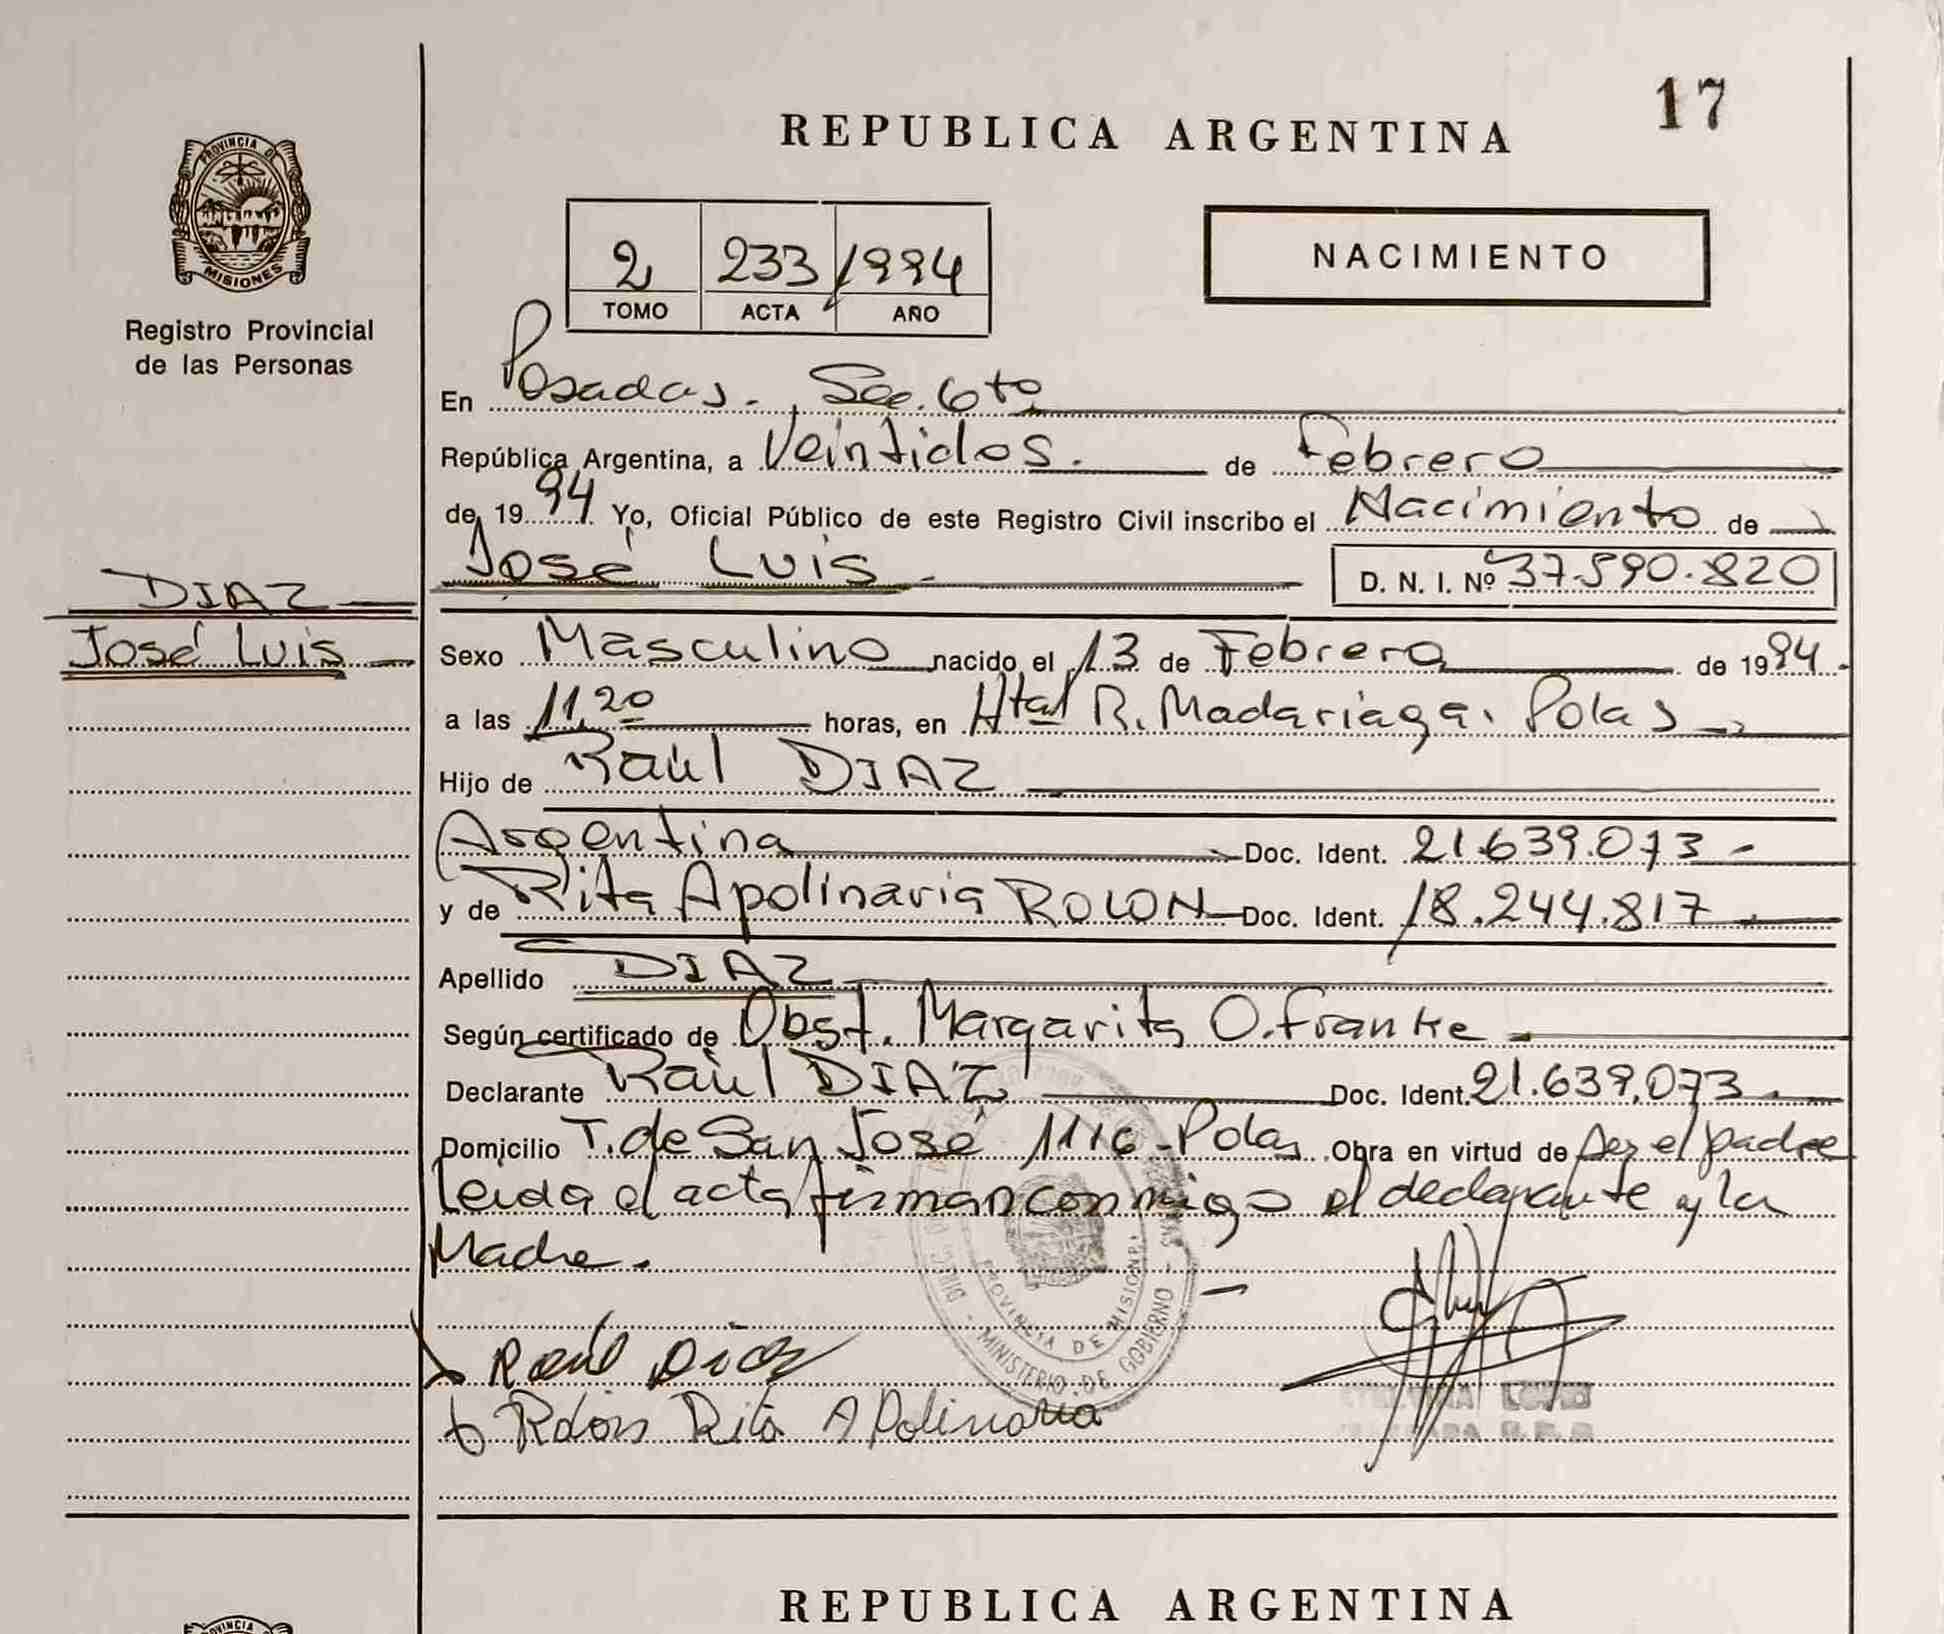 17
REPUBLICA ARGENTINA
PROVINCIA DE
MISIONES
Registro Provincial
de las Personas
2 233 1994
TOMO ACTA AÑO
NACIMIENTO
En Posadas. Sec. 6ta
República Argentina, a Veintidos. de Febrero
de 1994 Yo, Oficial Público de este Registro Civil inscribo el Nacimiento de
José Luis D. N. I. Nº 37.590.820
DIAZ
José Luis
Sexo Masculino nacido el 13 de Febrero de 1994.
a las 11,20 horas, en Htal R. Madariaga. Pdas
Hijo de Raúl DIAZ
Argentina Doc. Ident. 21.639.073 -
y de Rita Apolinaria ROLON Doc. Ident. 18.244.817
Apellido DIAZ
Según certificado de Obst. Margarita O. Franke
Declarante Raúl DIAZ Doc. Ident. 21.639.073
Domicilio T. de San José 1116 - Pdas Obra en virtud de ser el padre
Leida el acta firman conmigo el declarante y la
Madre.
PROVINCIA DE MISIONES
MINISTERIO DE GOBIERNO
Raúl Diaz
Rolon Rita Apolinaria
REPUBLICA ARGENTINA
PROVINCIA DE